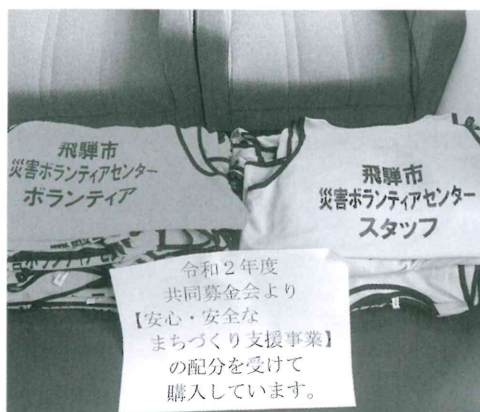 飛騨市
災害ボランティアセンター
ボランティア
飛騨市
災害ボランティアセンター
スタッフ
令和2年度
共同募金会より
【安心・安全な
まちづくり支援事業】
の配分を受けて
購入しています。